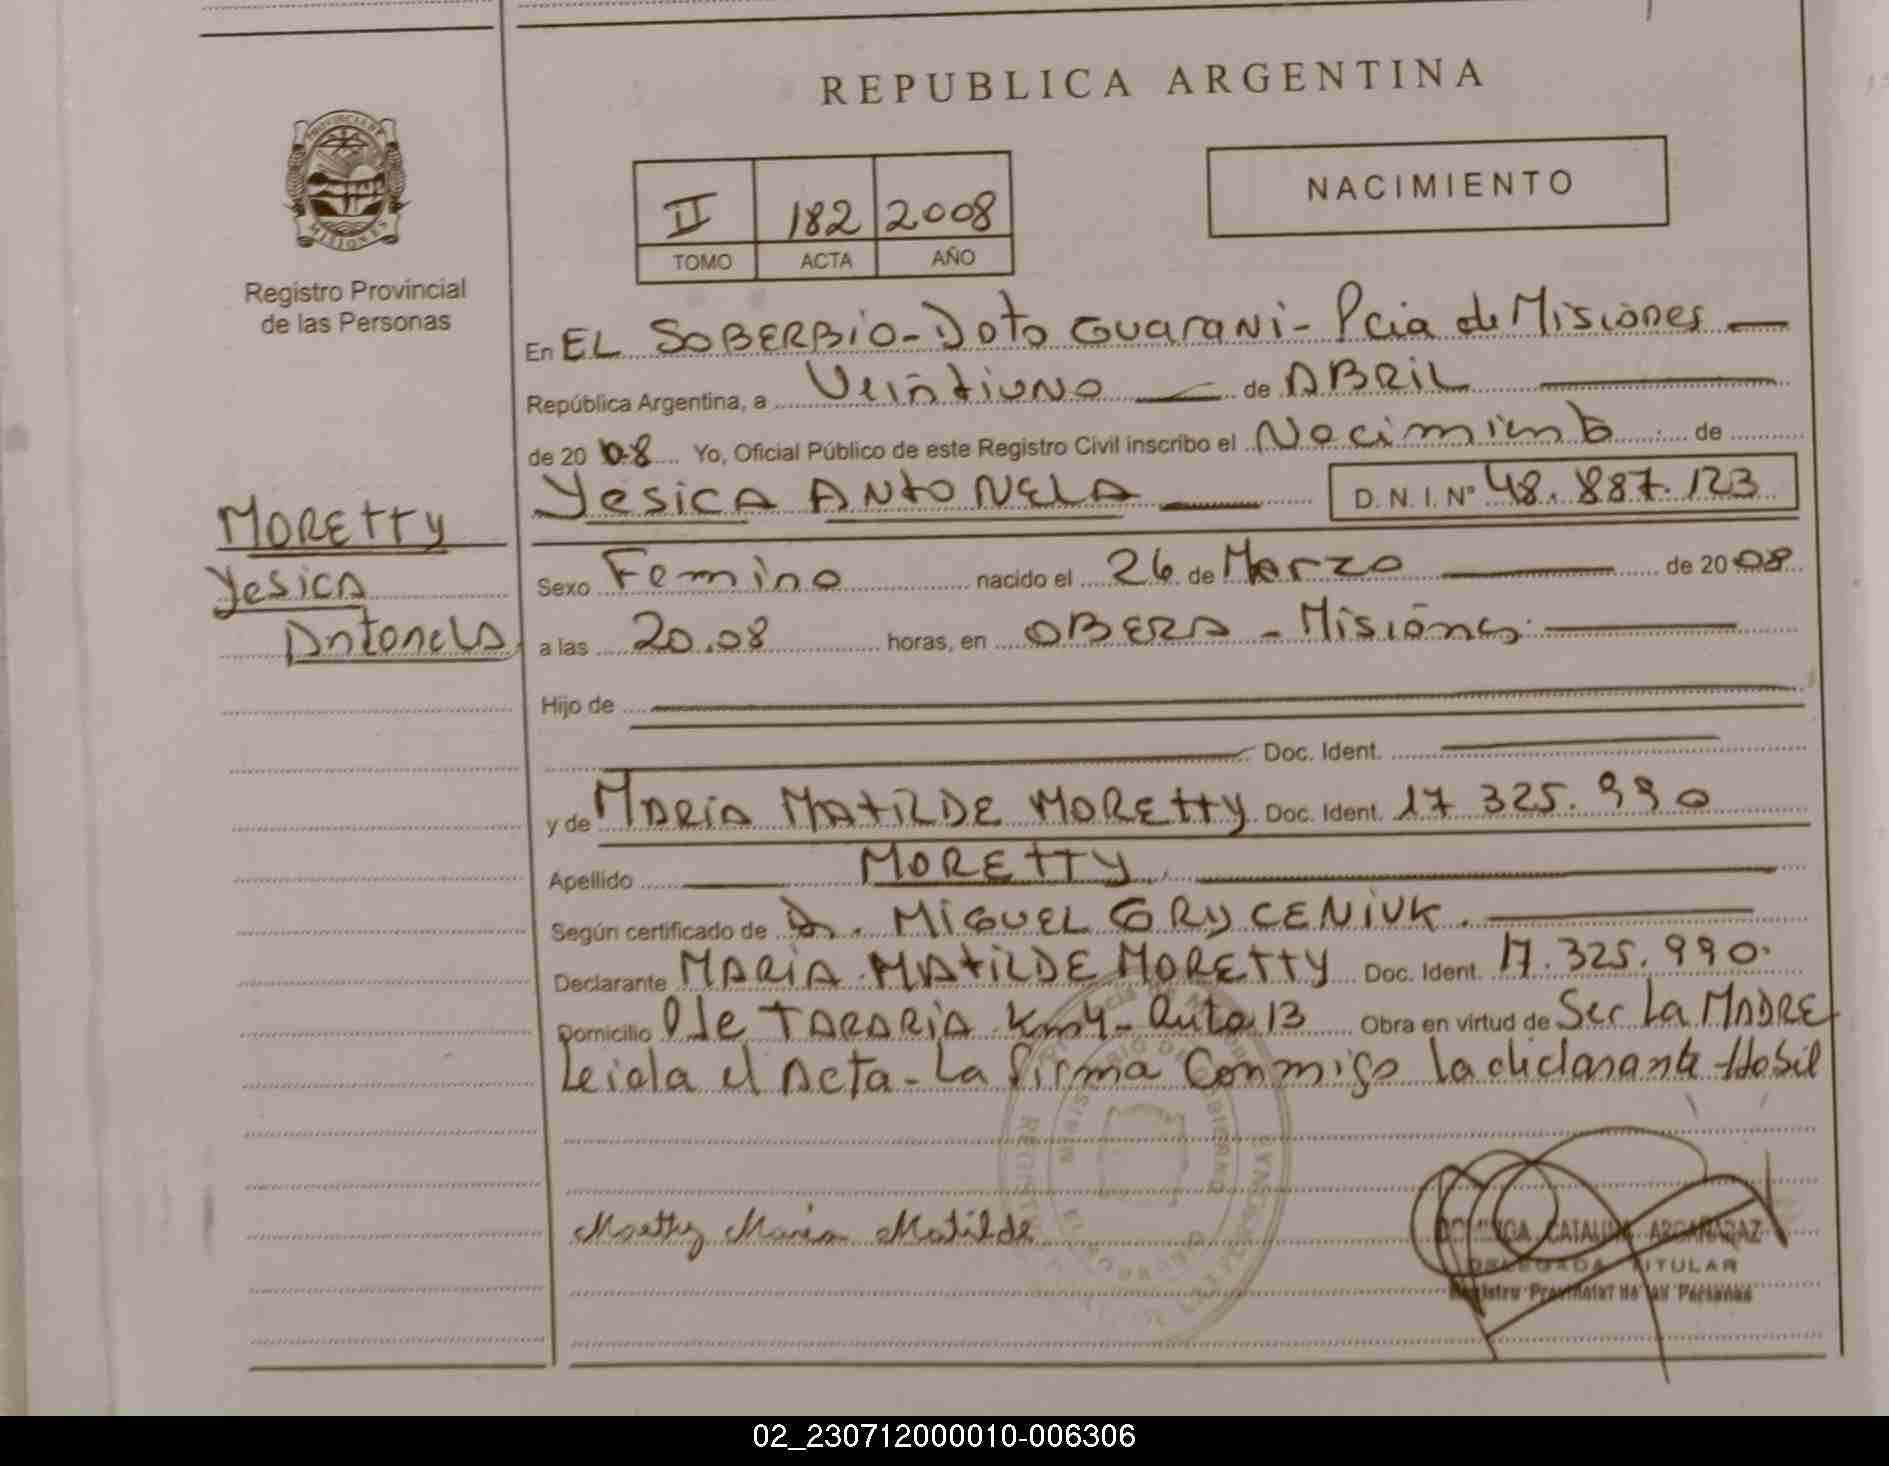 REPUBLICA ARGENTINA
PROVINCIA DE
MISIONES
Registro Provincial
de las Personas
NACIMIENTO
II 182 2008
TOMO ACTA AÑO
En EL SOBERBIO - Dpto GUARANI - Pcia de Misiones
República Argentina, a Veintiuno de ABRIL
de 20 08 Yo, Oficial Público de este Registro Civil inscribo el Nacimiento de
YESICA ANTONELA D. N. I. Nº 48.887.123
MORETTY
Yesica
Antonela
Sexo Femino nacido el 26 de Marzo de 20 08
a las 20.08 horas, en OBERA - Misiones.
Hijo de
Doc. Ident.
y de MARIA MATILDE MORETTY Doc. Ident. 17 325.990
Apellido MORETTY
Según certificado de Dr. MIGUEL GRYCENIUK.
Declarante MARIA MATILDE MORETTY Doc. Ident. 17.325.990.
Domicilio Pje TARARIA Km 4 - Ruta 13 Obra en virtud de Ser La MADRE
Leida el Acta - La firma Conmigo la declarante - Habil
Moretty Maria Matilde
DOMINGA CATALINA ARGAÑARAZ
DELEGADA TITULAR
Registro Provincial de las Personas
02_230712000010-006306